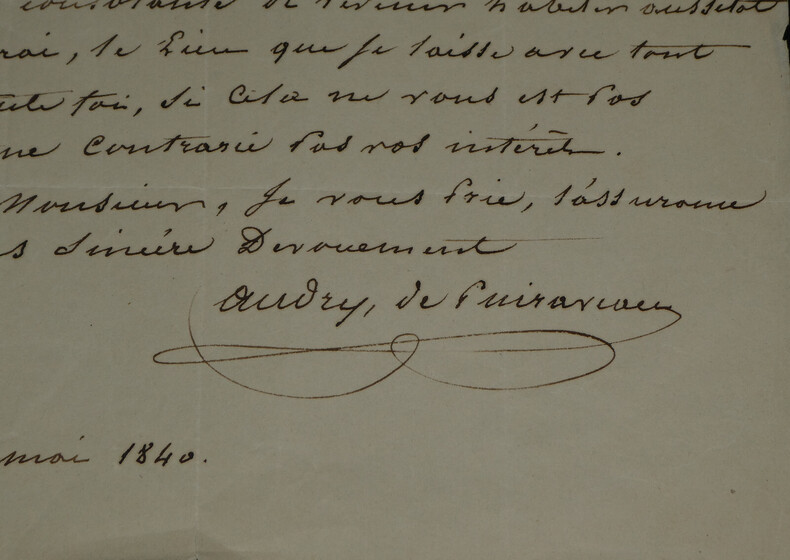 de venir habiter aussitot
rai, le Lieu que je laisse avec tout
toi, si cela ne vous est pas
ne contrarie pas vos intérêts.
Monsieur, je vous prie, l'assurance
s sincére Devouement
Audry, de Puiraveau
mai 1840.